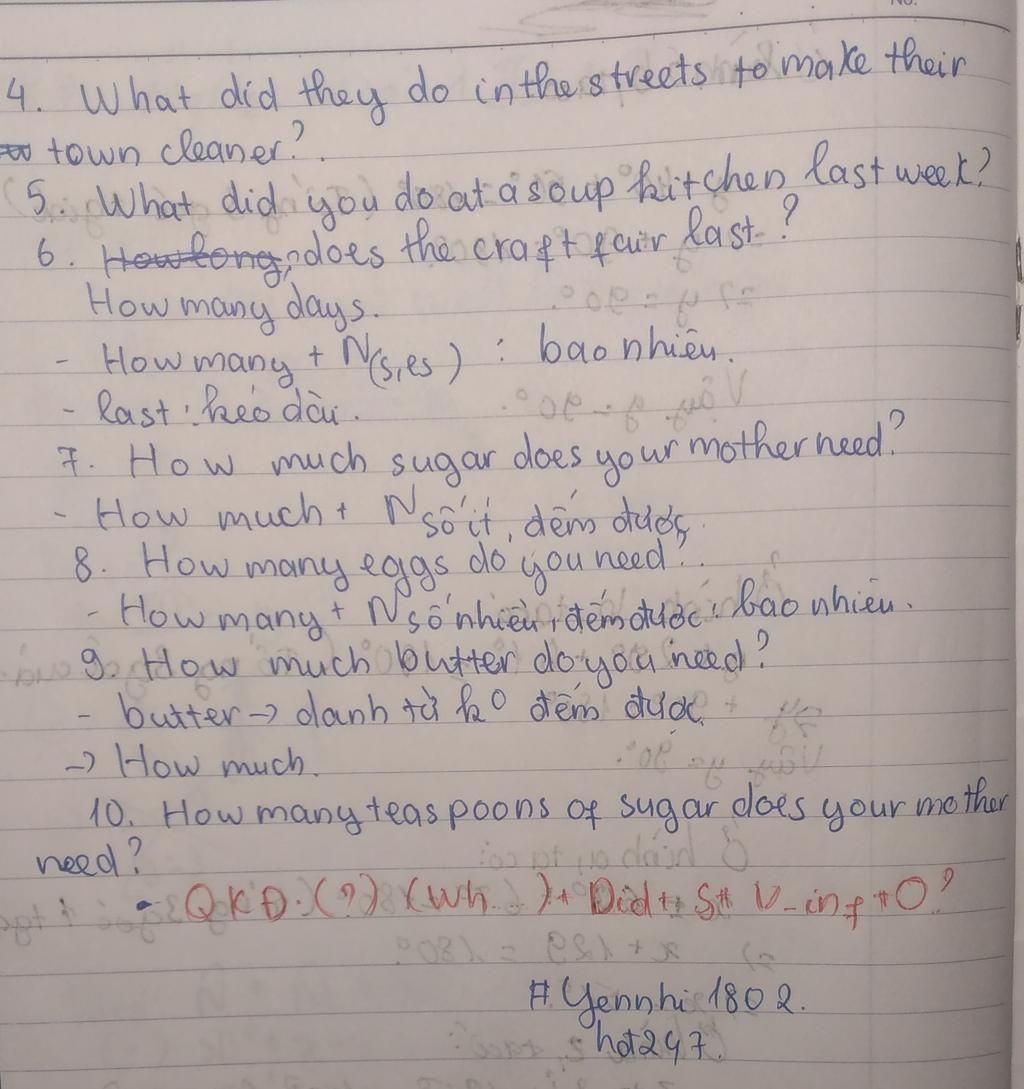 4. What did they do in the streets to make their
town cleaner?.
5. What did you do at a soup kitchen last week?
6. How long, does the craft fair last?
How many days.
- How many + N(s,es) : bao nhiêu.
- last : kéo dài.
7. How much sugar does your mother need?
- How much + N số ít, đếm được.
8. How many eggs do you need?.
- How many + N số nhiều, đếm được : bao nhiêu.
9. How much butter do you need?
- butter -> danh từ k° đếm được
-> How much.
10. How many teaspoons of sugar does your mother
need?
- QKĐ.(?) (Wh )+ Did + S + V-inf + O?
# Yennhi 1802.
hot247.